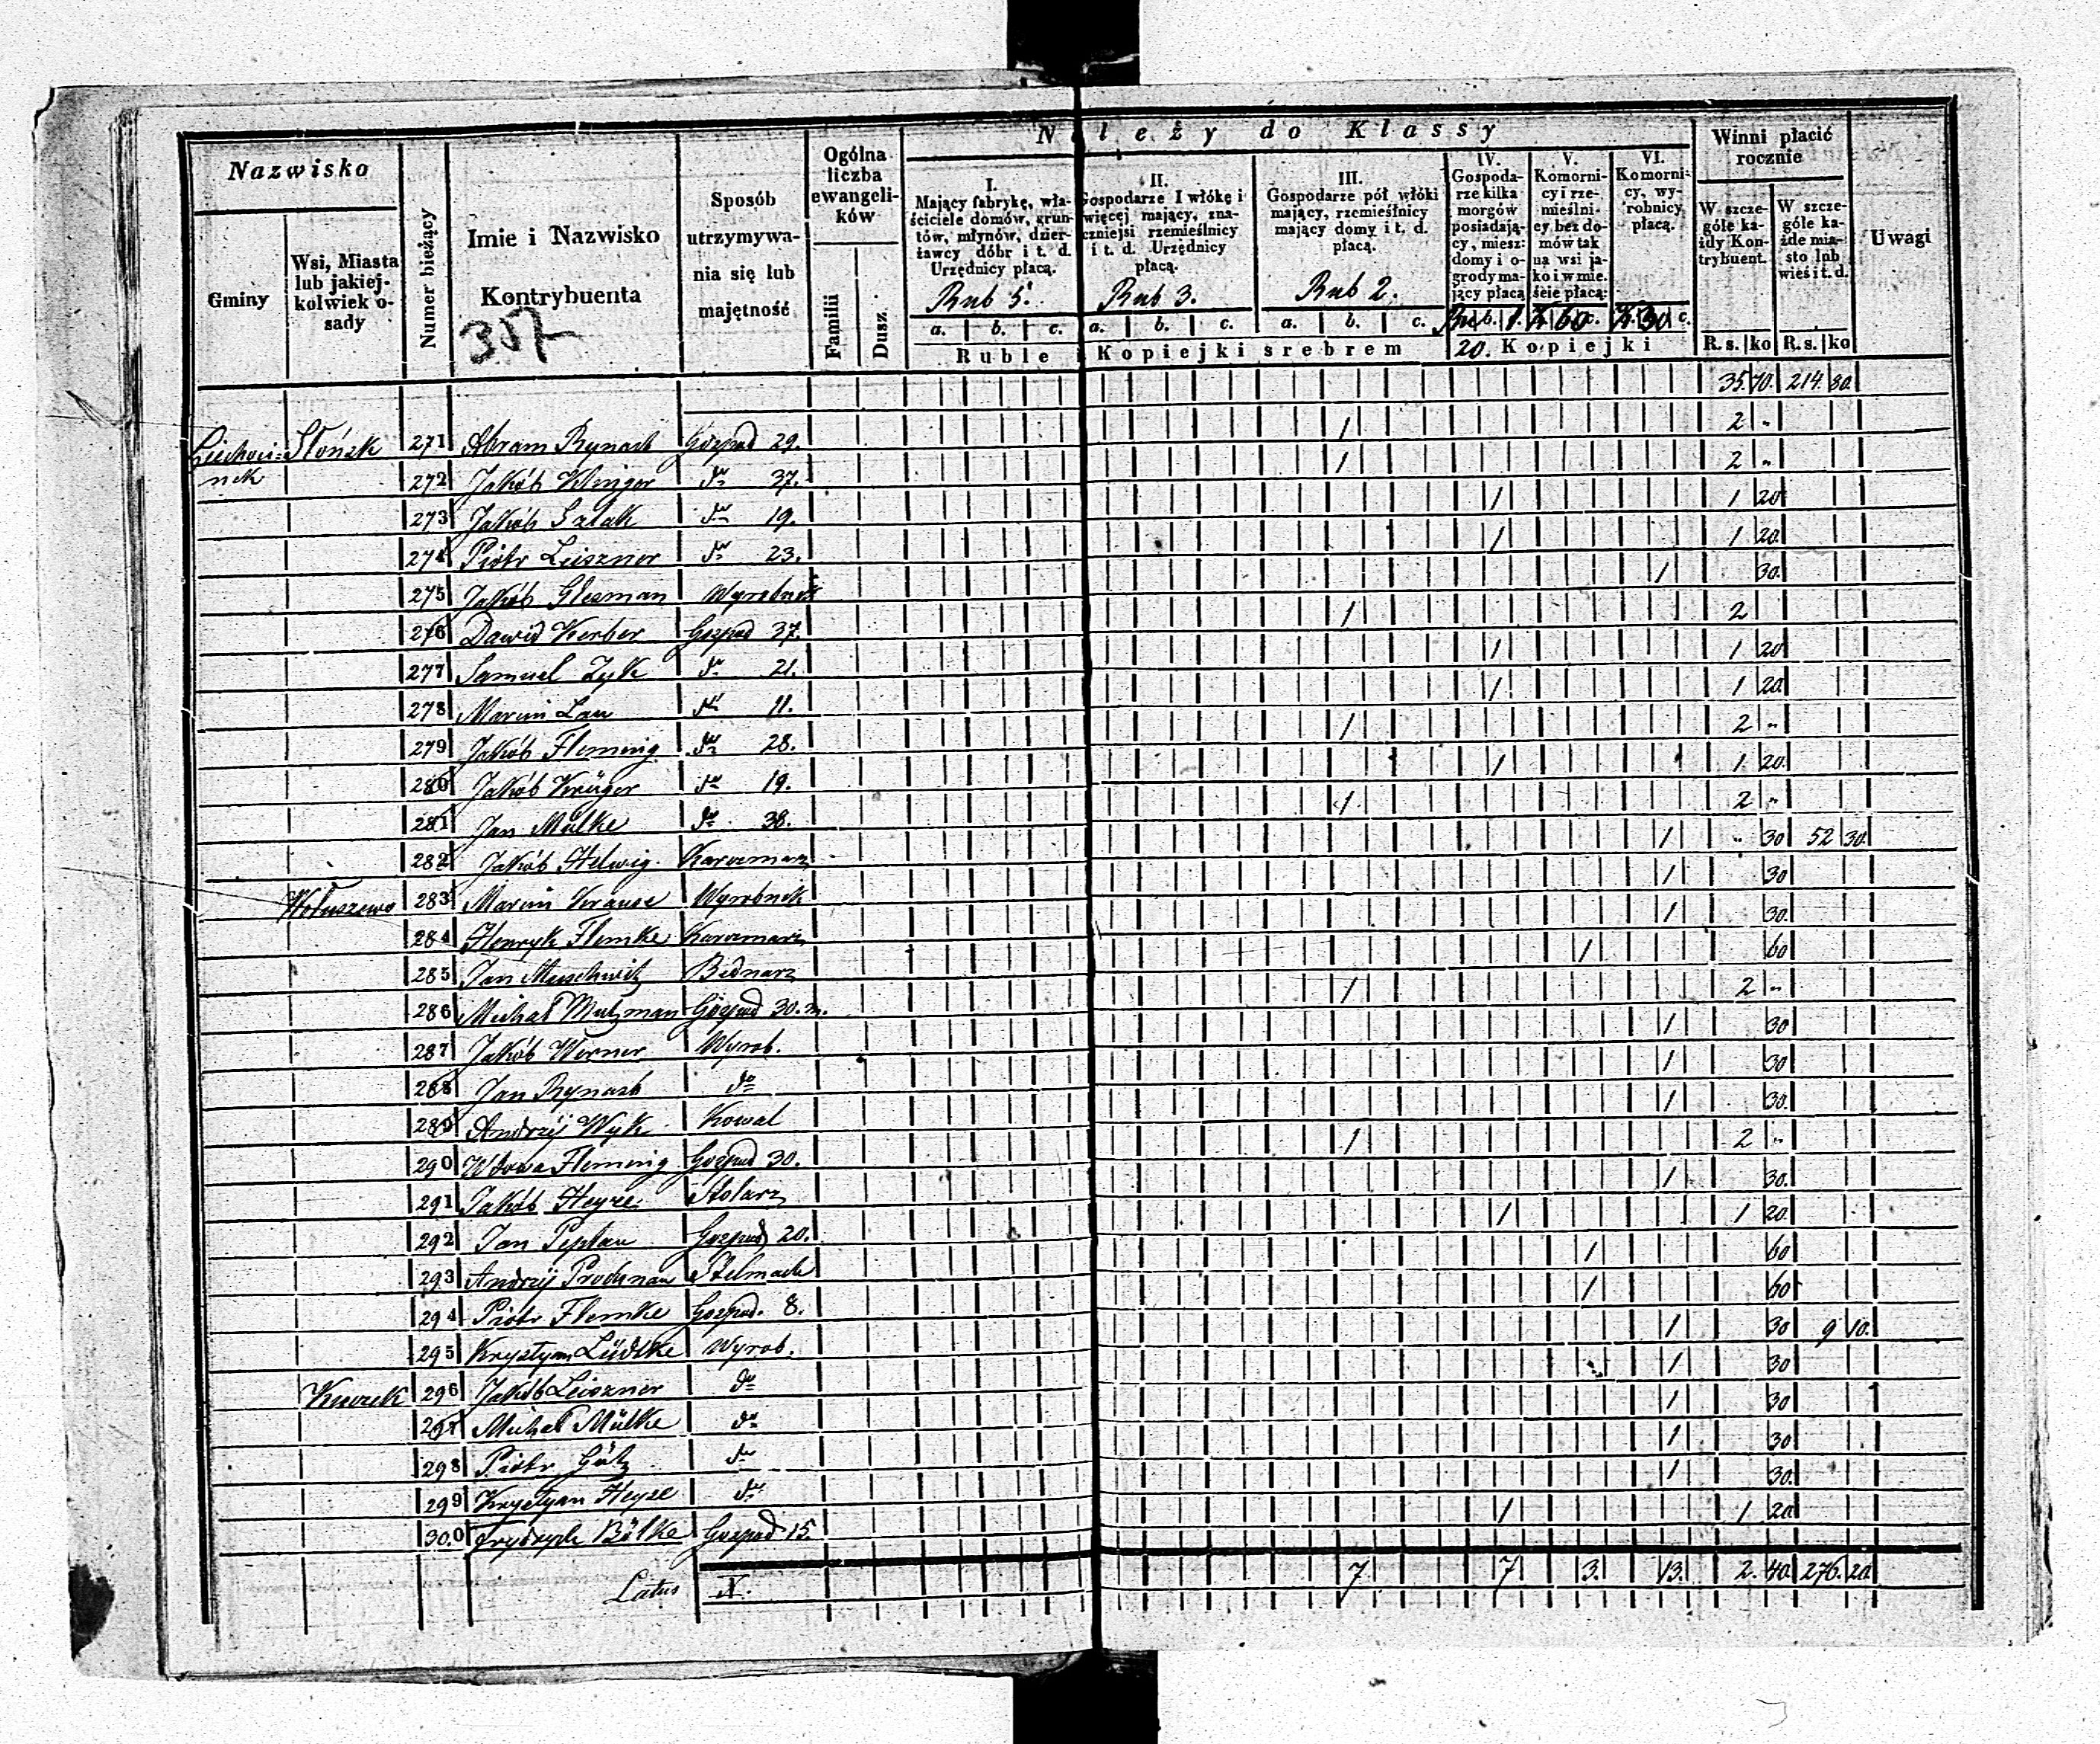 Należy do Klassy
Nazwisko
Gminy
Wsi, Miasta lub jakiej-kolwiek o-sady
Numer bieżący
Imie i Nazwisko Kontrybuenta
357
Sposób utrzymywa-nia się lub majętność
Ogólna liczba ewangeli-ków
Familii
Dusz.
I. Mający fabrykę, wła-ściciele domów, grun-tów, młynów, dzier-żawcy dóbr i t. d. Urzędnicy płacą.
Rub 5.
II. Gospodarze I włókę i więcej mający, zna-czniejsi rzemieślnicy i t. d. Urzędnicy płacą.
Rub 3.
III. Gospodarze pół włóki mający, rzemieślnicy mający domy i t. d. płacą.
Rub 2.
IV. Gospoda-rze kilka morgów posiadają-cy, miesz: domy i o-grody ma-jący płacą
Rub. 1. 20.
V. Komorni-cy i rze-mieślni-cy bez do-mów tak na wsi ja-ko i w mie-ście płacą:
K 60
VI. Komorni-cy, wy-robnicy płacą.
K. 30
a. b. c. a. b. c. a. b. c.
Ruble i Kopiejki srebrem
Kopiejki
Winni płacić rocznie
W szcze-góle ka-żdy Kon-trybuent.
W szcze-góle ka-żde mia-sto lub wieś i t. d.
R. s. ko R. s. ko
Uwagi
35 70. 214. 80.
Ciechoci=nek Słońsk 271 Abram Rynast Gospod 29. 1 2 "
272 Jakób Klinger do 37. 1 2 "
273 Jakób Sztak do 19. 1 1 20
274 Piotr Leiszner do 23. 1 1 20
275 Jakób Glesman Wyrobnik 1 30.
276 Dawid Kerber Gospod 37. 1 2
277 Samuel Zyk do 21. 1 1 20
278 Marcin Lau do 11. 1 1 20
279 Jakób Fleming do 28. 1 2 "
280 Jakób Krüger do 19. 1 1 20
281 Jan Mülke do 38. 1 2 "
282 Jakób Helwig Karczmarz 1 " 30 52 30.
Wołuszewo 283 Marcin Krause Wyrobnik 1 30
284 Henryk Flemke Karczmarz 1 30.
285 Jan Muschwitz Bednarz 1 60
286 Michał Mutzman Gospod 30. m. 1 2 "
287 Jakób Werner Wyrob. 1 30
288 Jan Rynast do 1 30
289 Andrzéj Wyk Kowal 1 30.
290 Wdowa Fleming Gospod 30. 1 2 "
291 Jakób Heyze Stolarz 1 30.
292 Jan Peplau Gospod 20. 1 1 20
293 Andrzéj Prochnau Stelmach 1 60
294 Piotr Flemke Gospod. 8. 1 60
295 Krystyan Lüdtke Wyrob. 1 30 9 10.
Kuczek 296 Jakób Leiszner do 1 30
297 Michał Mülke do 1 30
298 Piotr Götz do 1 30
299 Krystyan Heyze do 1 30.
300 Frydrych Bölke Gospod 15. 1 1 20
Latus X. 7 7 3. 13. 2. 40 276. 20